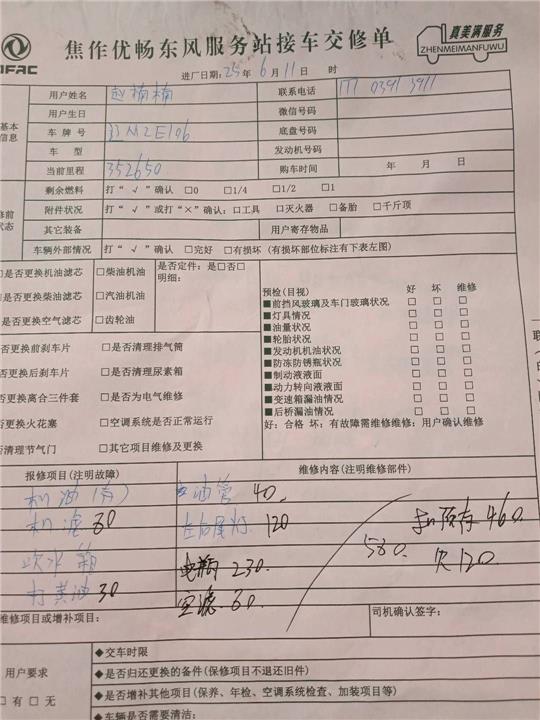 焦作优畅东风服务站接车交修单
真美满服务
ZHENMEIMANFUWU
进厂日期:25年6月11日 时
用户姓名 赵楠楠 联系电话
用户生日 微信号码
基本
信息
车牌号 底盘号码
车 型 发动机号码
当前里程 352650 购车时间 年 月 日
剩余燃料 打“√”确认 □0 □1/4 □1/2 □1
修前
状态
附件状况 打“√”或打“×”确认:□工具 □灭火器 □备胎 □千斤顶
其它装备 用户寄存物品
车辆外部情况 打“√”确认 □完好 □有损坏(有损坏部位标注有下表左图)
□是否更换机油滤芯 □柴油机油 是否定件:是□否□
明细:
是否更换柴油滤芯 □汽油机油
是否更换空气滤芯 □齿轮油
预检(目视) 好 坏 维修
■前挡风玻璃及车门玻璃状况 □ □ □
■灯具情况 □ □ □
■油量状况 □ □ □
■轮胎状况 □ □ □
■发动机机油状况 □ □ □
■防冻防锈瓶状况 □ □ □
■制动液液面 □ □ □
■动力转向液液面 □ □ □
■变速箱漏油情况 □ □ □
■后桥漏油情况 □ □ □
好:合格 坏:有故障需维修维修:用户确认维修
是否更换前刹车片 □是否清理排气筒
是否更换后刹车片 □是否清理尿素箱
否更换离合三件套 □是否为电气维修
否更换火花塞 □空调系统是否正常运行
否清理节气门 □其它项目维修及更换
报修项目(注明故障) 维修内容(注明维修部件)
机油(有) 油管 40.
机滤 80 左右尾灯 120
吹水箱 电瓶 230.
打黄油 30 空滤 80.
580.
扣预存 460.
欠120.
维修项目或增补项目: 司机确认签字:
用户要求
□有 □无
◆交车时限
◆是否归还更换的备件(保修项目不退还旧件)
◆是否增补其他项目(保养、年检、空调系统检查、加装项目等)
◆车辆是否需要清洁: